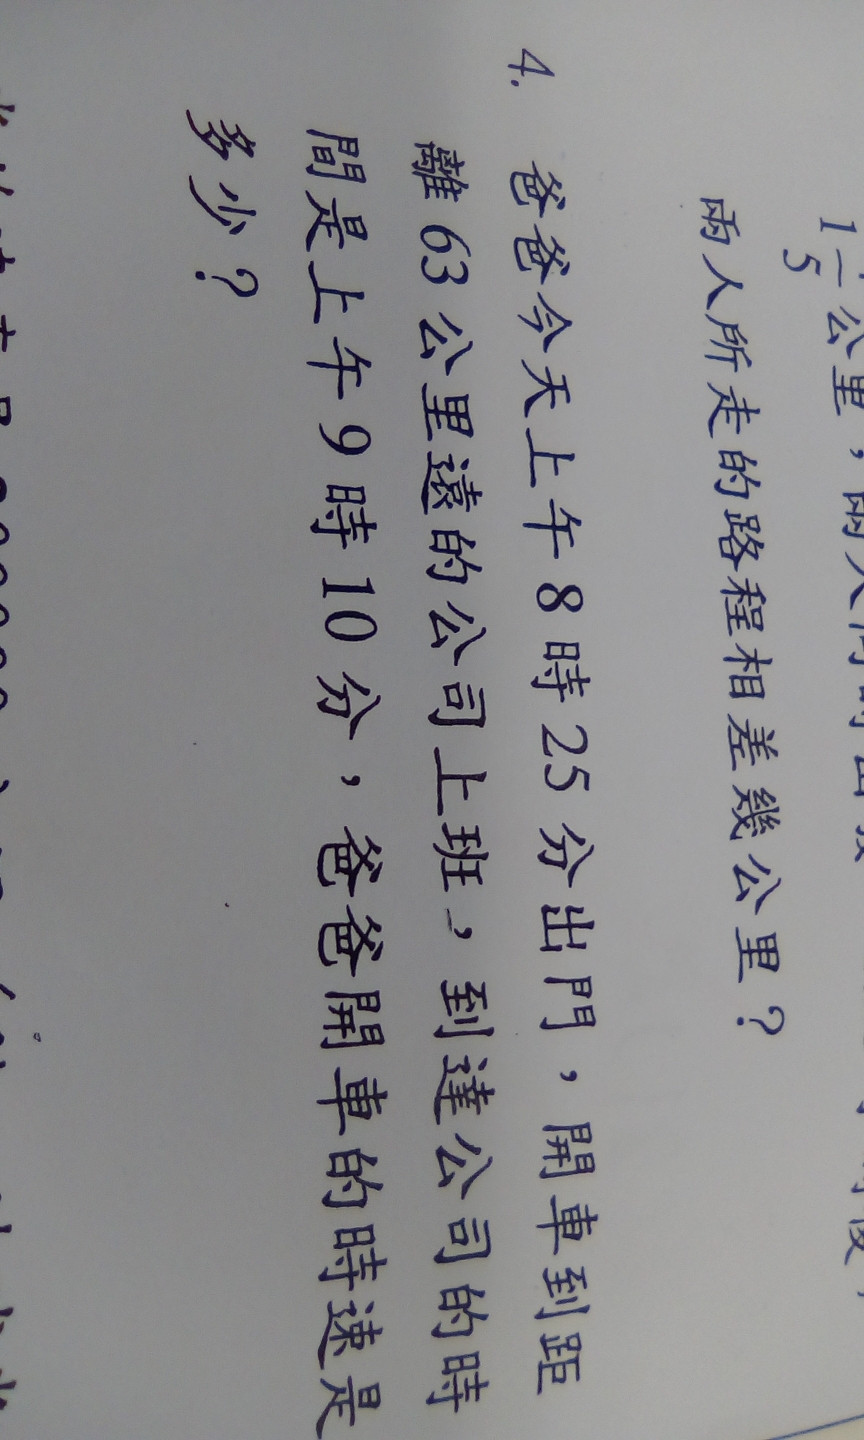 1 5 公里，兩人同時出發
兩人所走的路程相差幾公里？
4. 爸爸今天上午8時25分出門，開車到距
離63公里遠的公司上班，到達公司的時
間是上午9時10分，爸爸開車的時速是
多少？